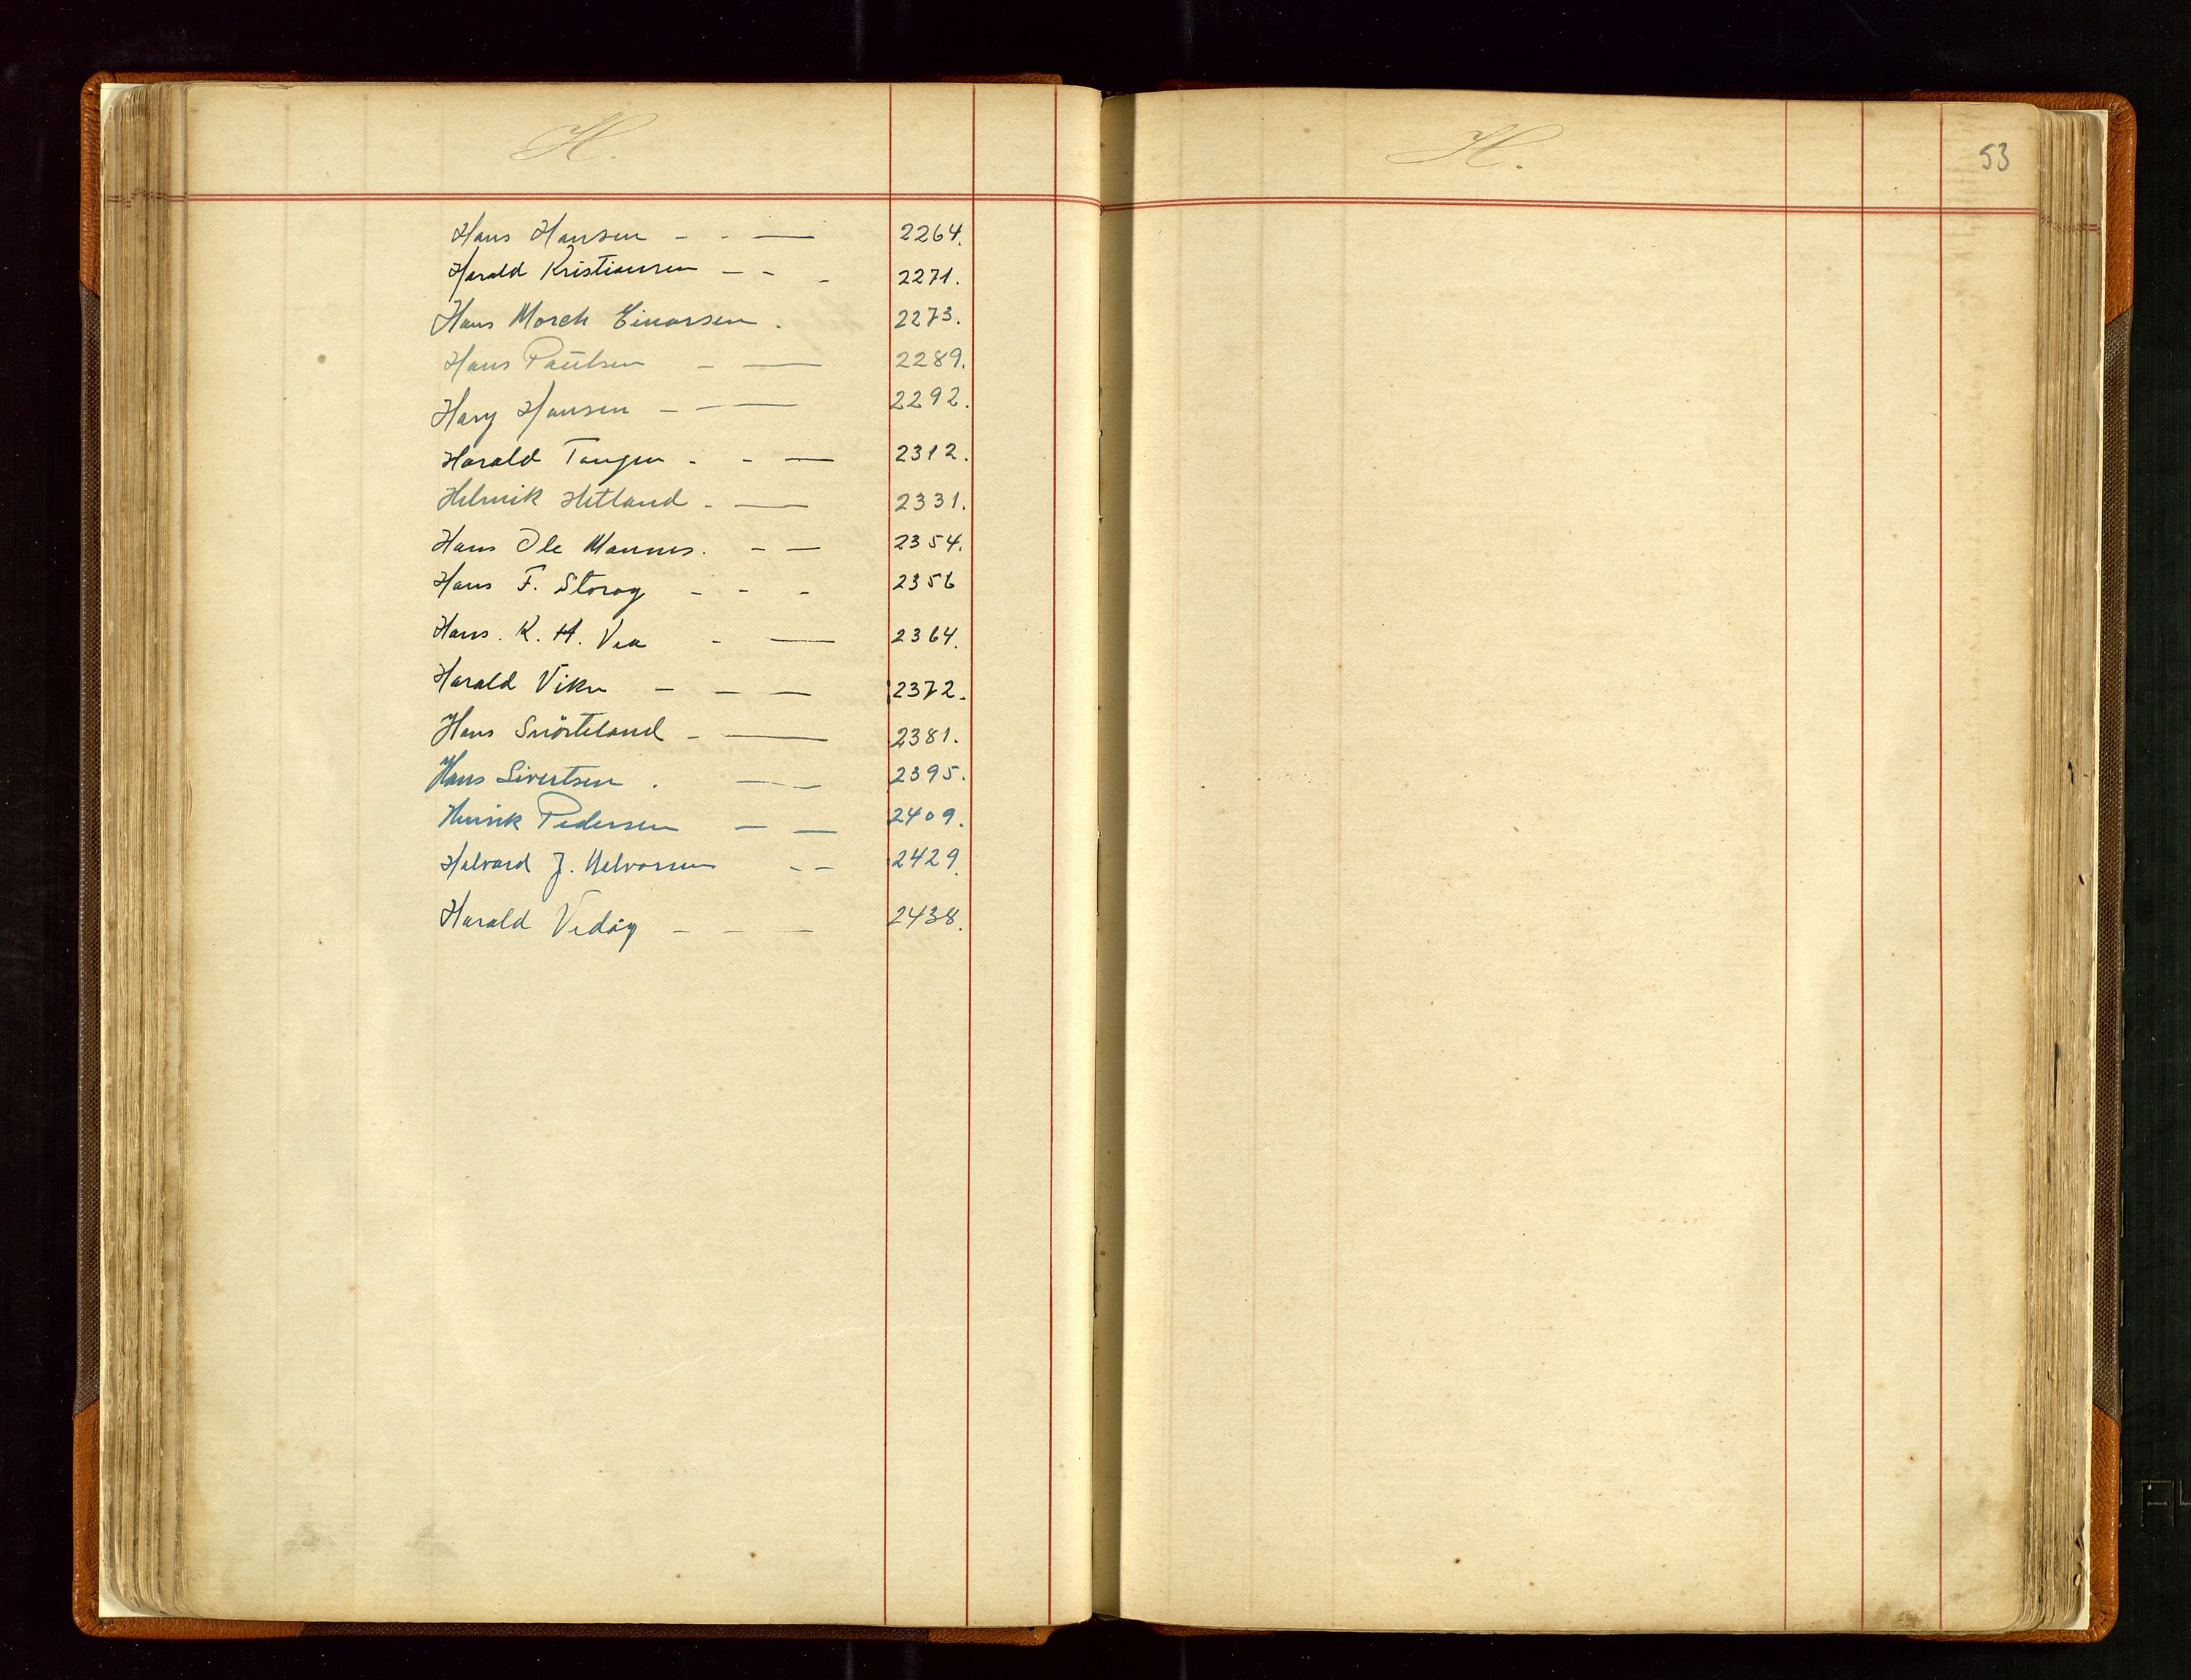 H.
Hans Hansen - - — 2264.
Harald Kristiansen - - - 2271.
Hans Morch Einarsen . 2273.
Hans Paulsen - — 2289.
Hary Hansen - — 2292.
Harald Tangen - - — 2312.
Helmik Hetland - — 2331.
Hans Ole Mannes. - — 2354.
Hans F. Storøy - - - 2356
Hans. K. H. Vea - — 2364.
Harald Vikre - - — 2372.
Hans Snörteland - — 2381.
Hans Sivertsen . — 2395.
Henrik Pedersen — — 2409.
Halvard J. Halvorsen - - 2429.
Harald Vedøy - - — 2438.
H.
53